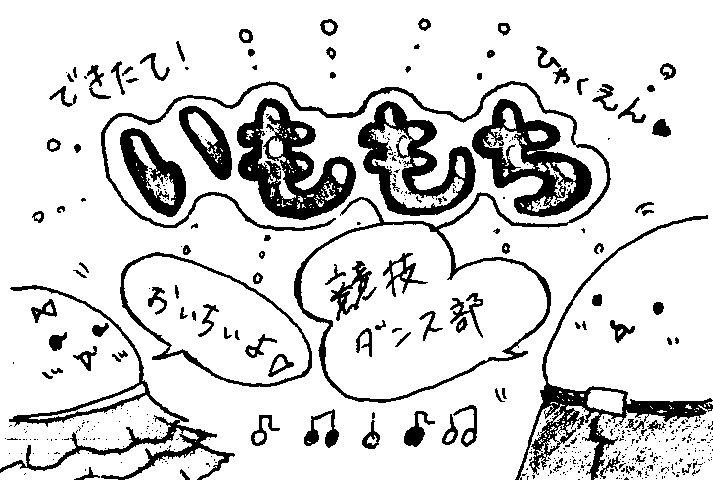 できたて！
ひゃくえん
いももち
おいちいよ
競技
ダンス部